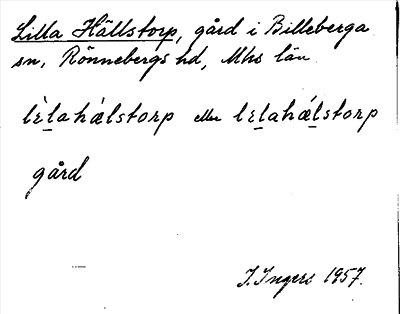 Lilla Hällstorp, gård i Billeberga
sn, Rönnebergs hd, Mhs län
lèlahálstorp eller lelahálstorp
gård
I. Ingers 1957.